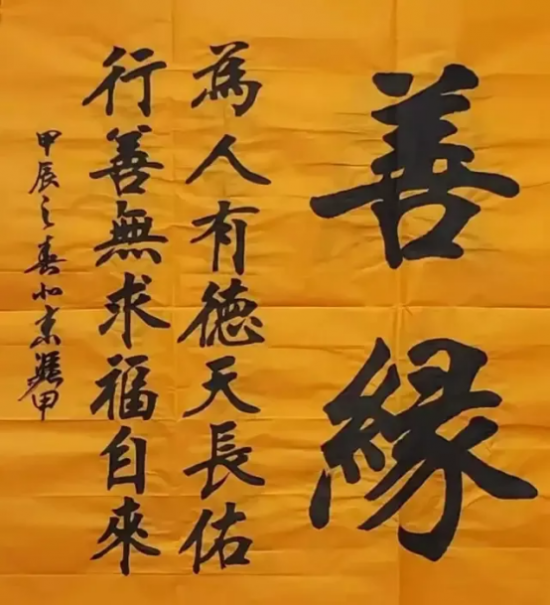 善緣
為人有德天長佑
行善無求福自來
甲辰之春北京